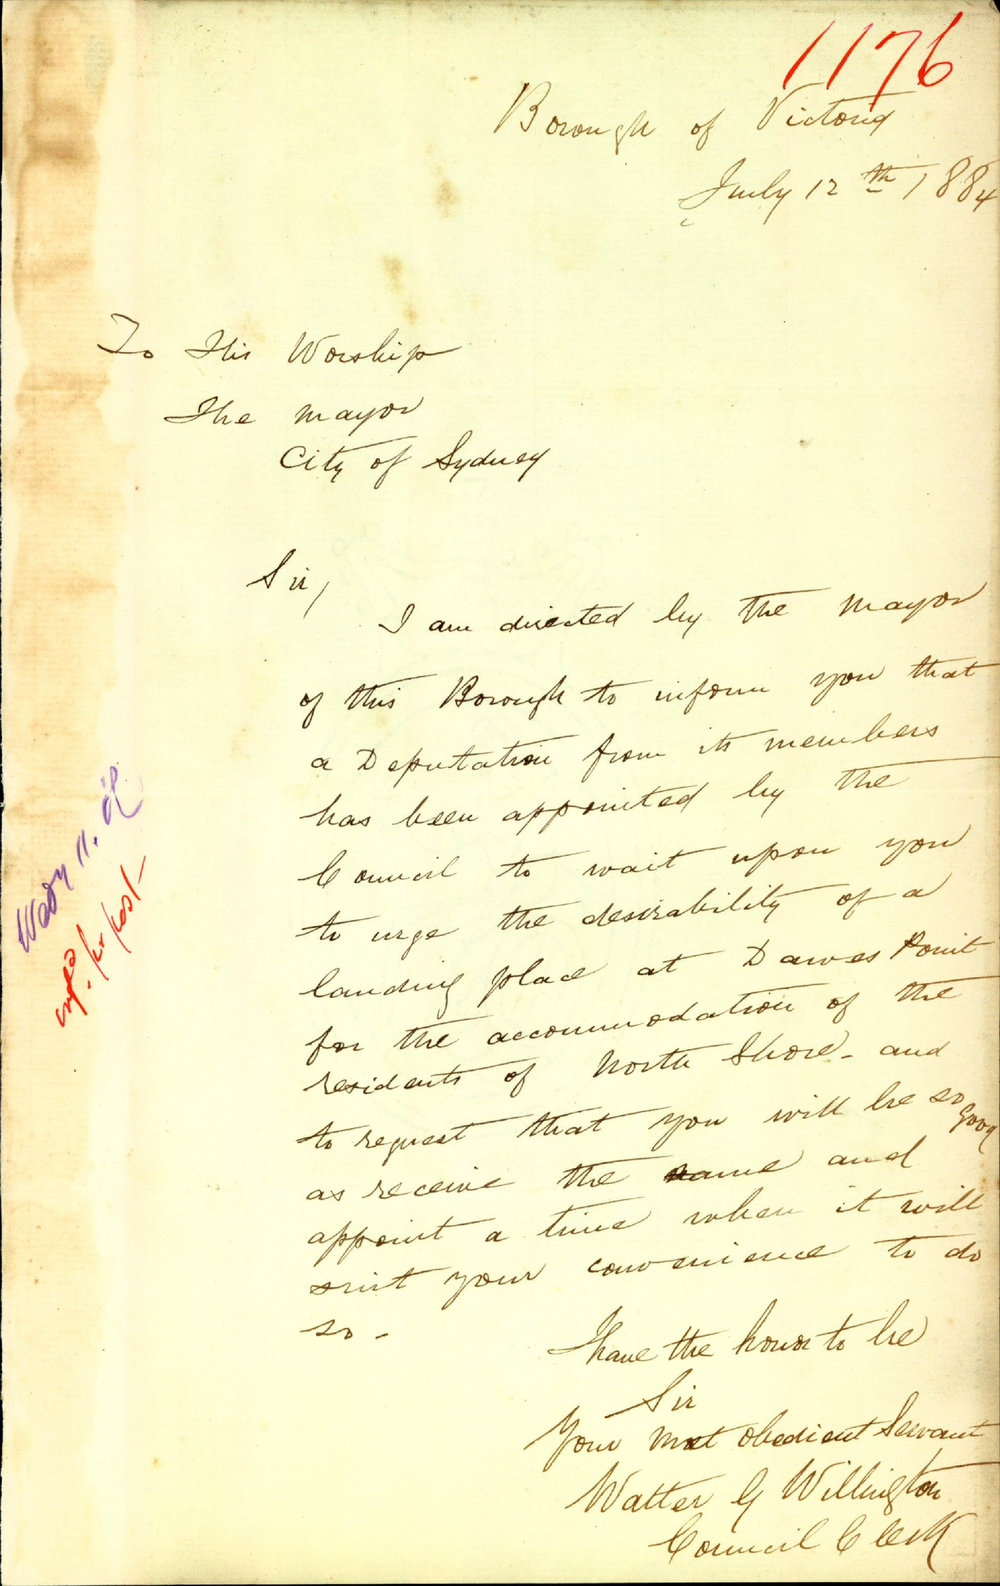 1176
Borough of Victoria
July 12th 1884
To His Worship
The Mayor
City of Sydney
Sir,
I am directed by the Mayor
of this Borough to inform you that
a Deputation from its members
has been appointed by the
Council to wait upon you
to urge the desirability of a
landing place at Dawes Point
for the accommodation of the
residents of North Shore - and
to request that you will be so good
as receive the same and
appoint a time when it will
suit your convenience to do
so -
I have the honor to be
Sir
Your most obedient Servant
Walter G Willington
Council Clerk
Wedy 11.